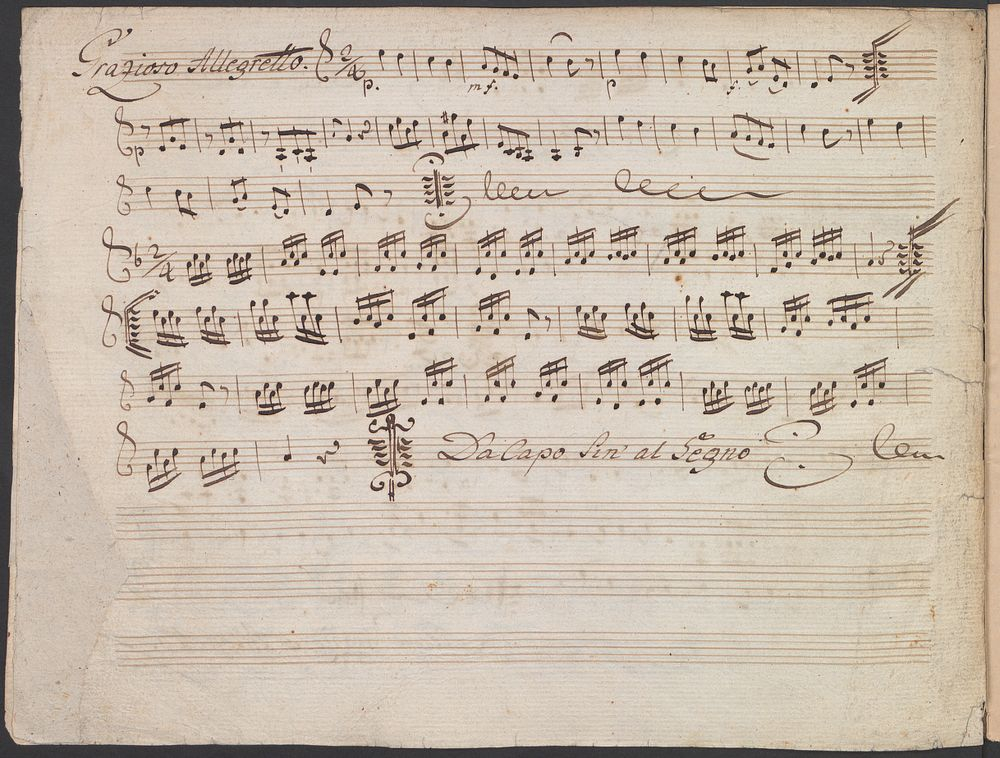 Grazioso Allegretto. 2/4
p. mf. p f.
p
2/4
Da Capo Sin' al Segno